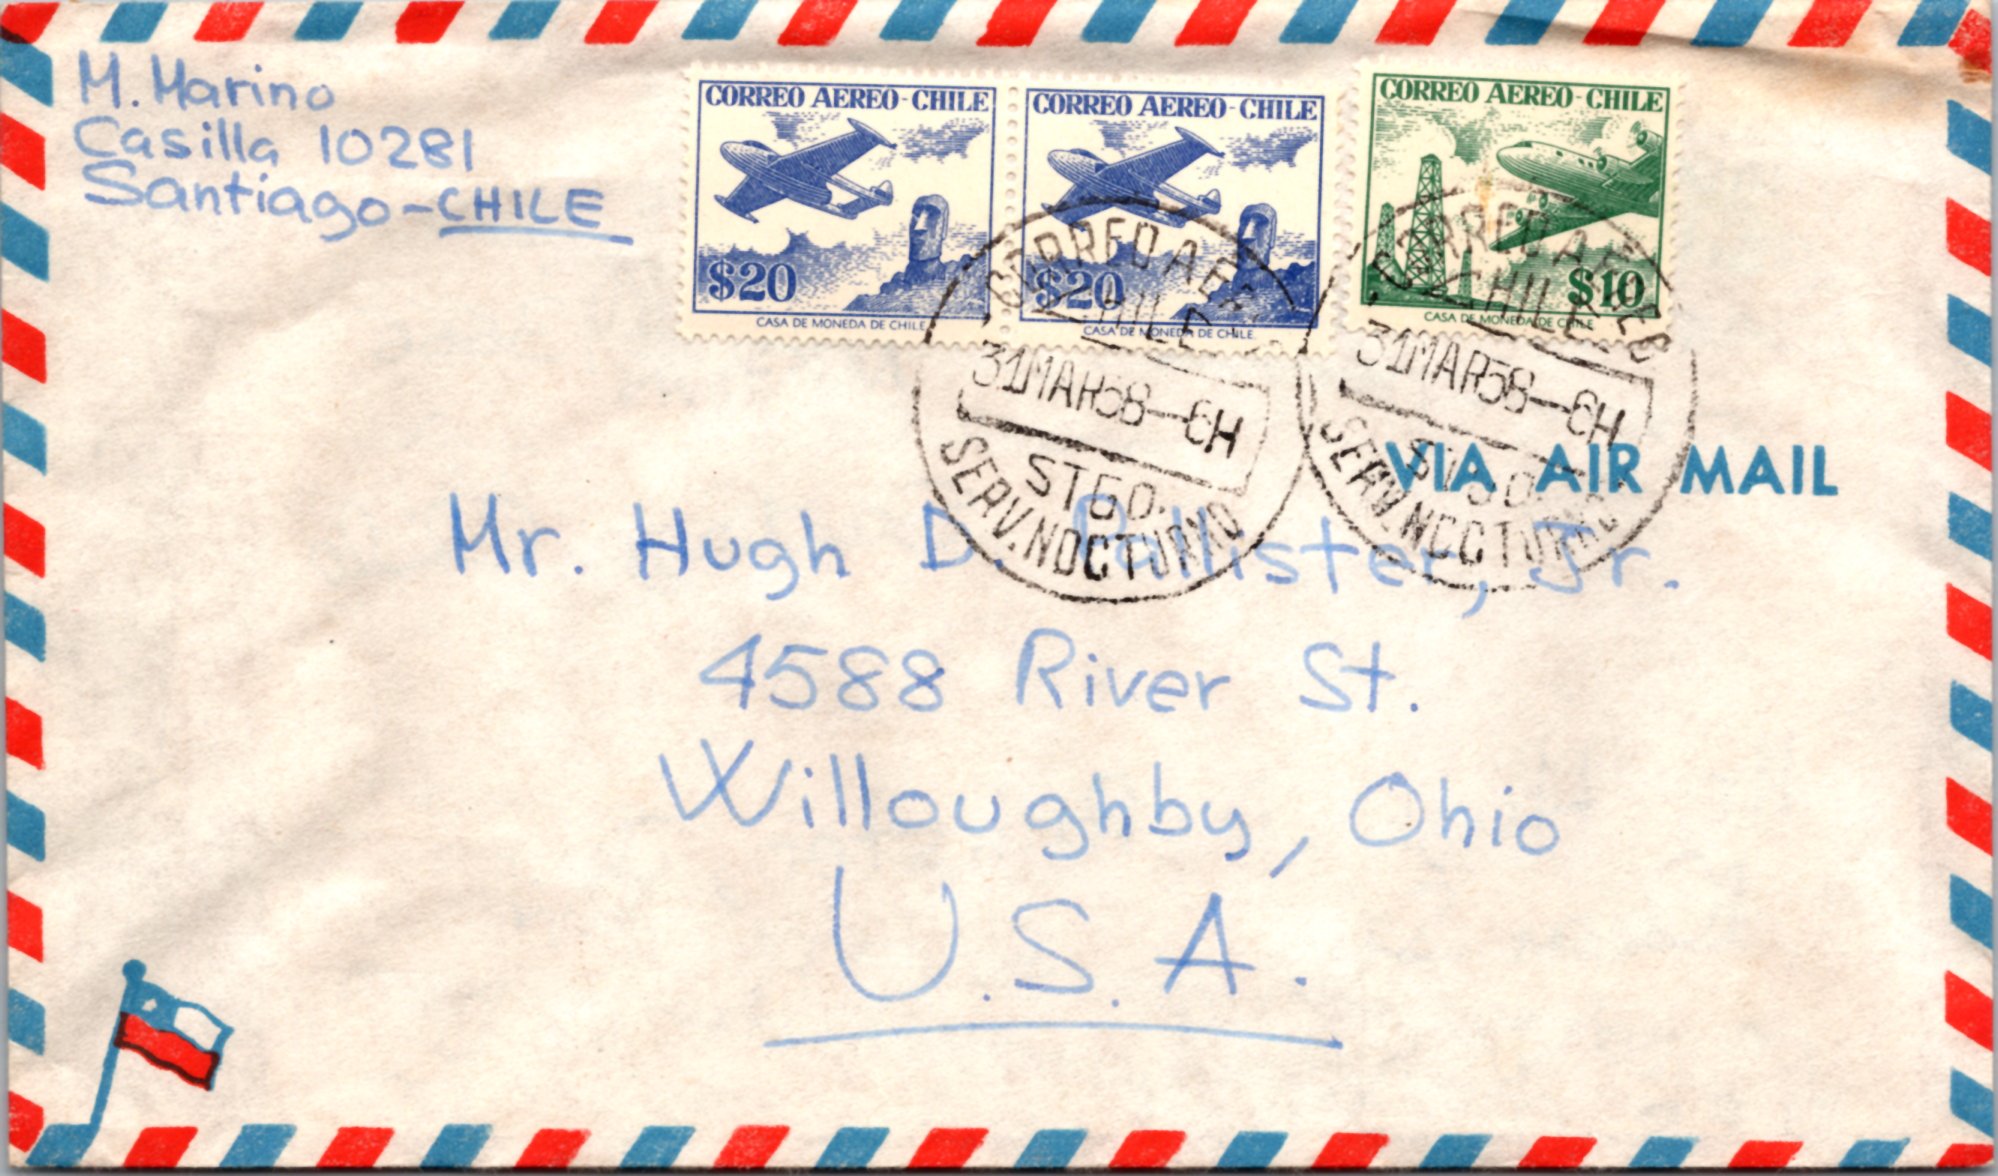 M. Marino
Casilla 10281
Santiago - CHILE
CORREO AEREO - CHILE
$20
CASA DE MONEDA DE CHILE
CORREO AEREO - CHILE
$20
CASA DE MONEDA DE CHILE
CORREO AEREO - CHILE
$10
CASA DE MONEDA DE CHILE
CORREO AEREO
CHILE
31MAR58-6H
STGO.
SERV.NOCTURNO
CORREO AEREO
CHILE
31MAR58-6H
STGO.
SERV.NOCTURNO
VIA AIR MAIL
Mr. Hugh D. Pallister, Jr.
4588 River St.
Willoughby, Ohio
U.S.A.